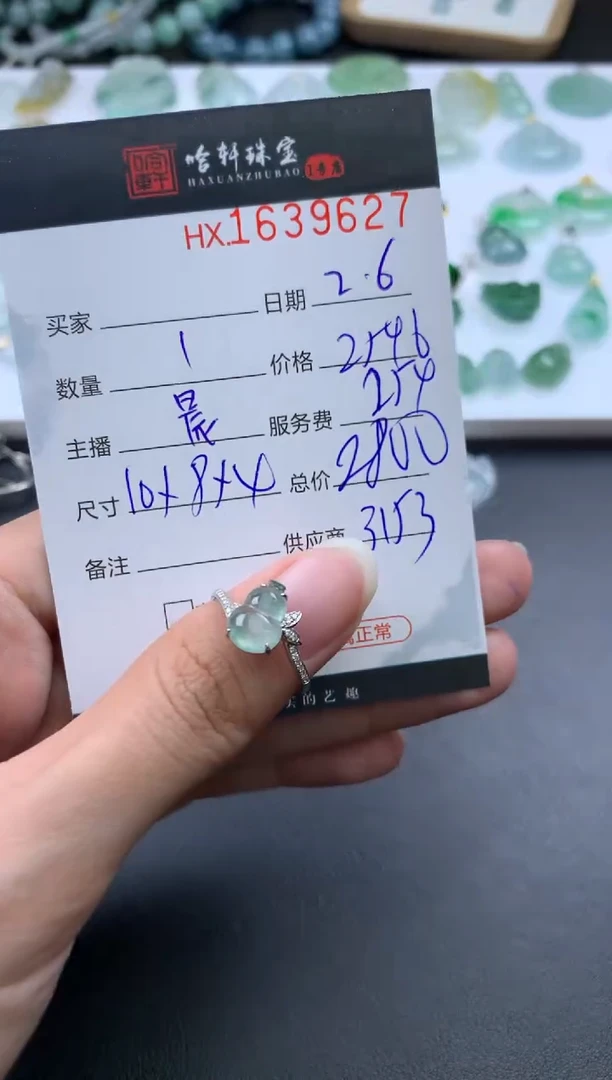 哈轩珠宝 1号店
HAXUANZHUBAO
HX.1639627
买家 日期 2.6
数量 1 价格 2546
主播 晨 服务费 254
尺寸 10x8x4 总价 2800
备注 供应商 3153
正常
的艺趣